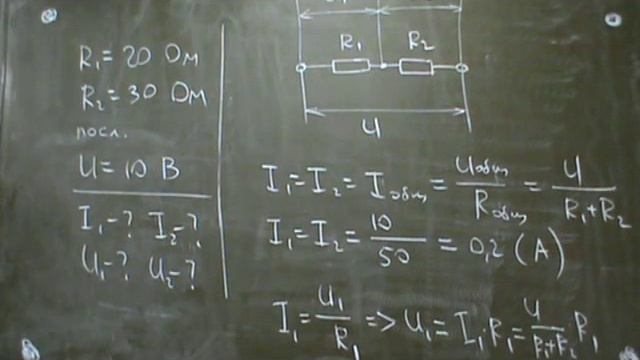 R₁ = 20 Ом
R₂ = 30 Ом
посл.
U = 10 В
I₁ - ? I₂ - ?
U₁ - ? U₂ - ?
R₁ R₂
U
I₁ = I₂ = Iобщ = Uобщ / Rобщ = U / (R₁ + R₂)
I₁ = I₂ = 10 / 50 = 0,2 (А)
I₁ = U₁ / R₁ => U₁ = I₁·R₁ = U / (R₁+R₂) · R₁